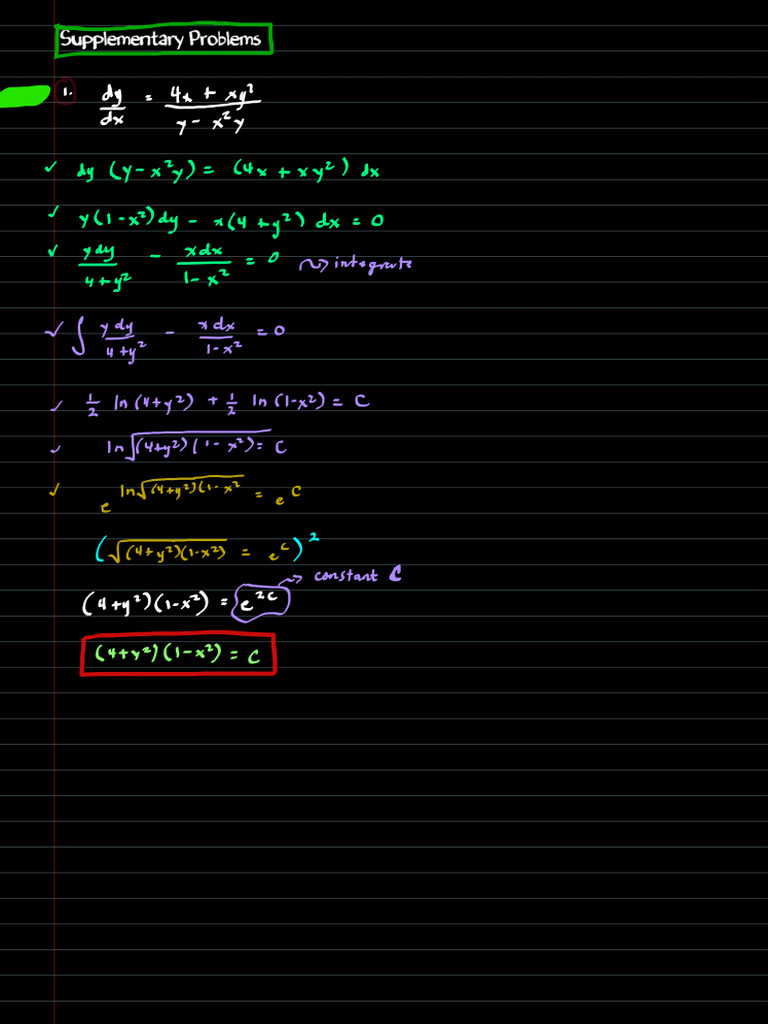 Supplementary Problems
1. dy/dx = (4x + xy²)/(y - x²y)
✓ dy (y - x²y) = (4x + xy²) dx
✓ y(1-x²)dy - x(4+y²) dx = 0
✓ ydy/(4+y²) - xdx/(1-x²) = 0 ⇝ integrate
✓ ∫ y dy/(4+y²) - x dx/(1-x²) = 0
✓ 1/2 ln(4+y²) + 1/2 ln(1-x²) = C
✓ ln√((4+y²)(1-x²)) = C
✓ e^(ln√((4+y²)(1-x²)) = e^C
(√((4+y²)(1-x²)) = e^C)²
→ constant C
(4+y²)(1-x²) = e^(2C)
(4+y²)(1-x²) = C